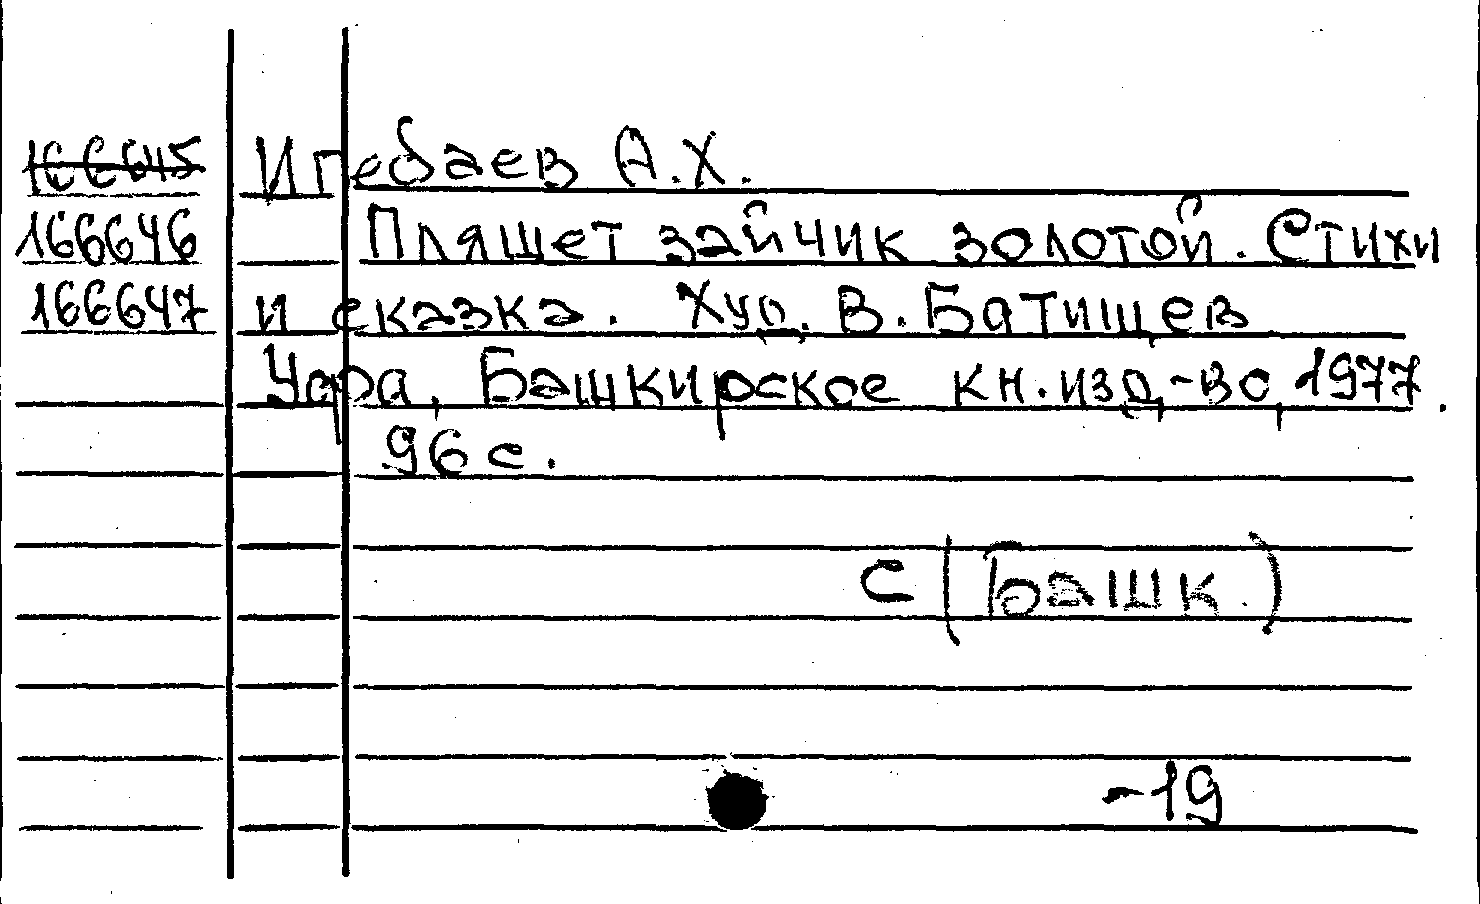 166645 Игебаев А.Х.
166646 Пляшет зайчик золотой. Стихи
166647 и сказка. Худ. В. Батищев
Уфа, Башкирское кн. изд-во, 1977.
96 с.
С (Башк.)
-19